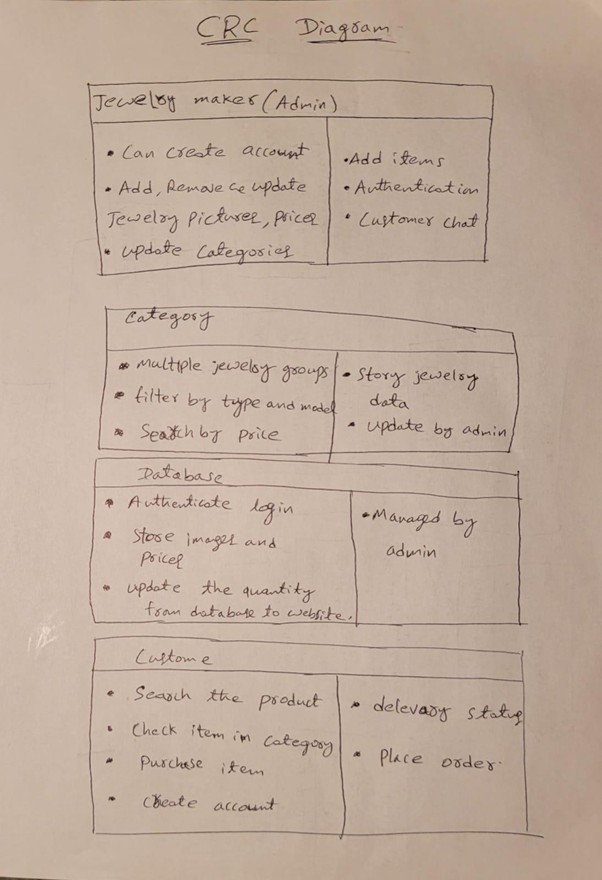 CRC Diagram
Jewelry maker (Admin)
• Can create account
• Add, Remove & update
Jewelry pictures, prices
• update categories
• Add items
• Authentication
• Customer chat
Category
• Multiple jewelry groups
• filter by type and model
• Search by price
• Story jewelry
data
• update by admin
Database
• Authenticate login
• Store images and
prices
• update the quantity
from database to website.
• Managed by
admin
Custome
• Search the product
• Check item in category
• Purchase item
• Create account
• delevary status
• Place order.